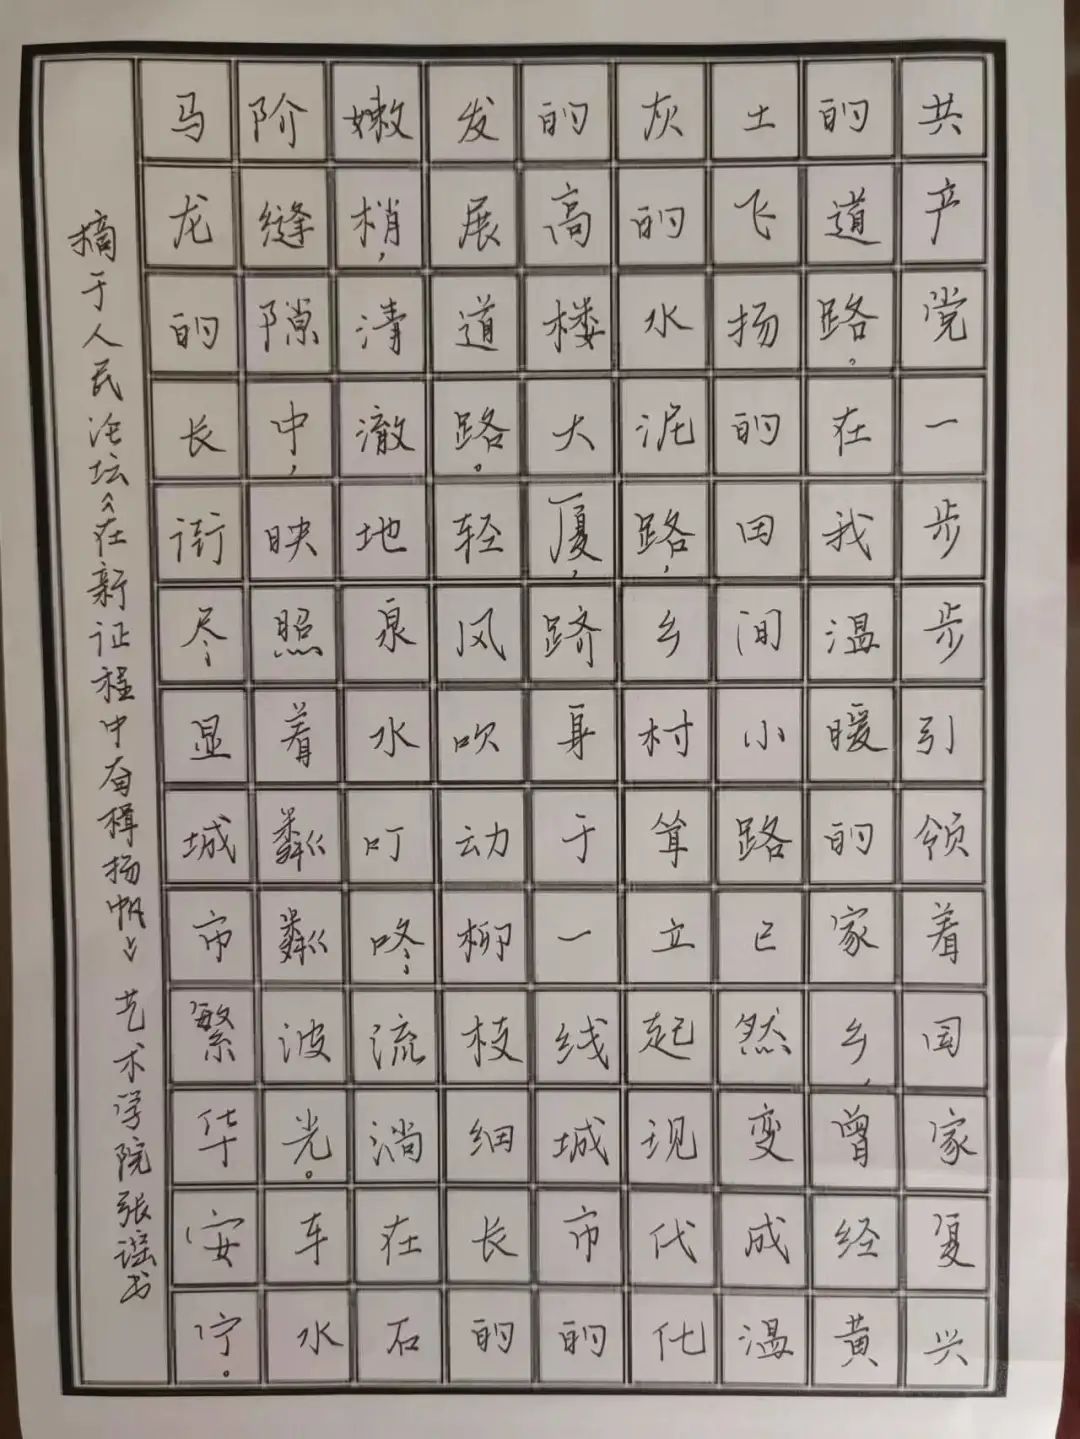 共产党一步步引领着国家复兴
的道路。在我温暖的家乡,曾经黄
土飞扬的田间小路已然变成温
灰的水泥路,乡村耸立起现代化
的高楼大厦,跻身于一线城市的
发展道路。轻风吹动柳枝细长的
嫩梢,清澈地泉水叮咚流淌在石
阶缝隙中,映照着粼粼波光。车水
马龙的长街尽显城市繁华安宁。
摘于人民论坛《在新证程中奋楫扬帆》 艺术学院张谣书